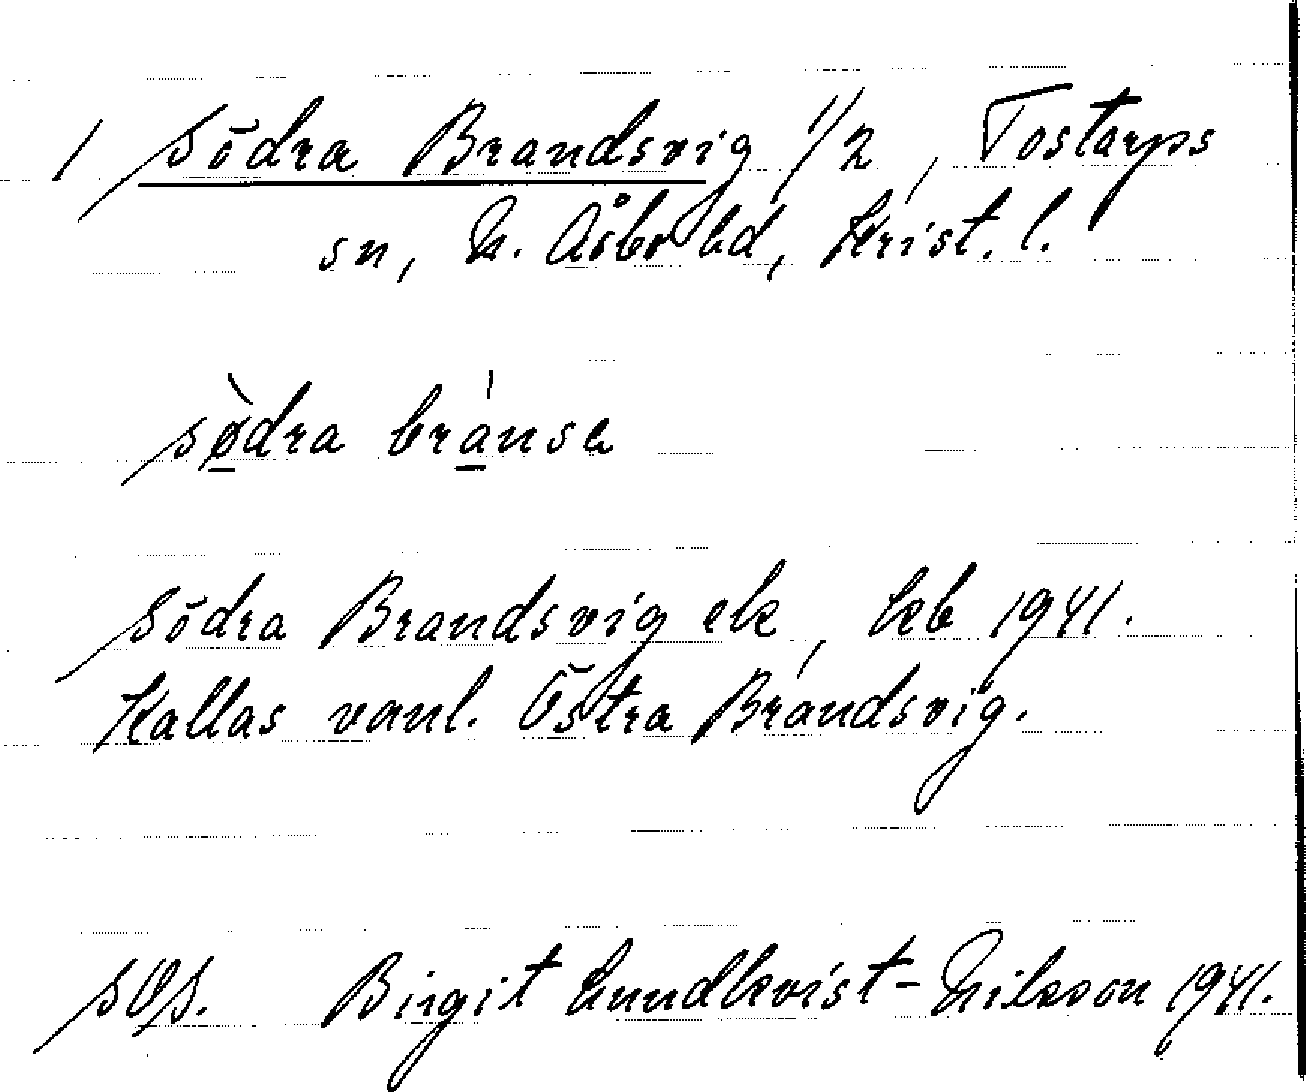 / Södra Brandsvig 1/2, Tostarps
sn, N. Åsbo hd, Krist. l.
sø̀dra bránsa
Södra Brandsvig ek, kb 1941.
Kallas vanl. Östra Brandsvig.
Birgit Lundkvist-Nilsson 1941.